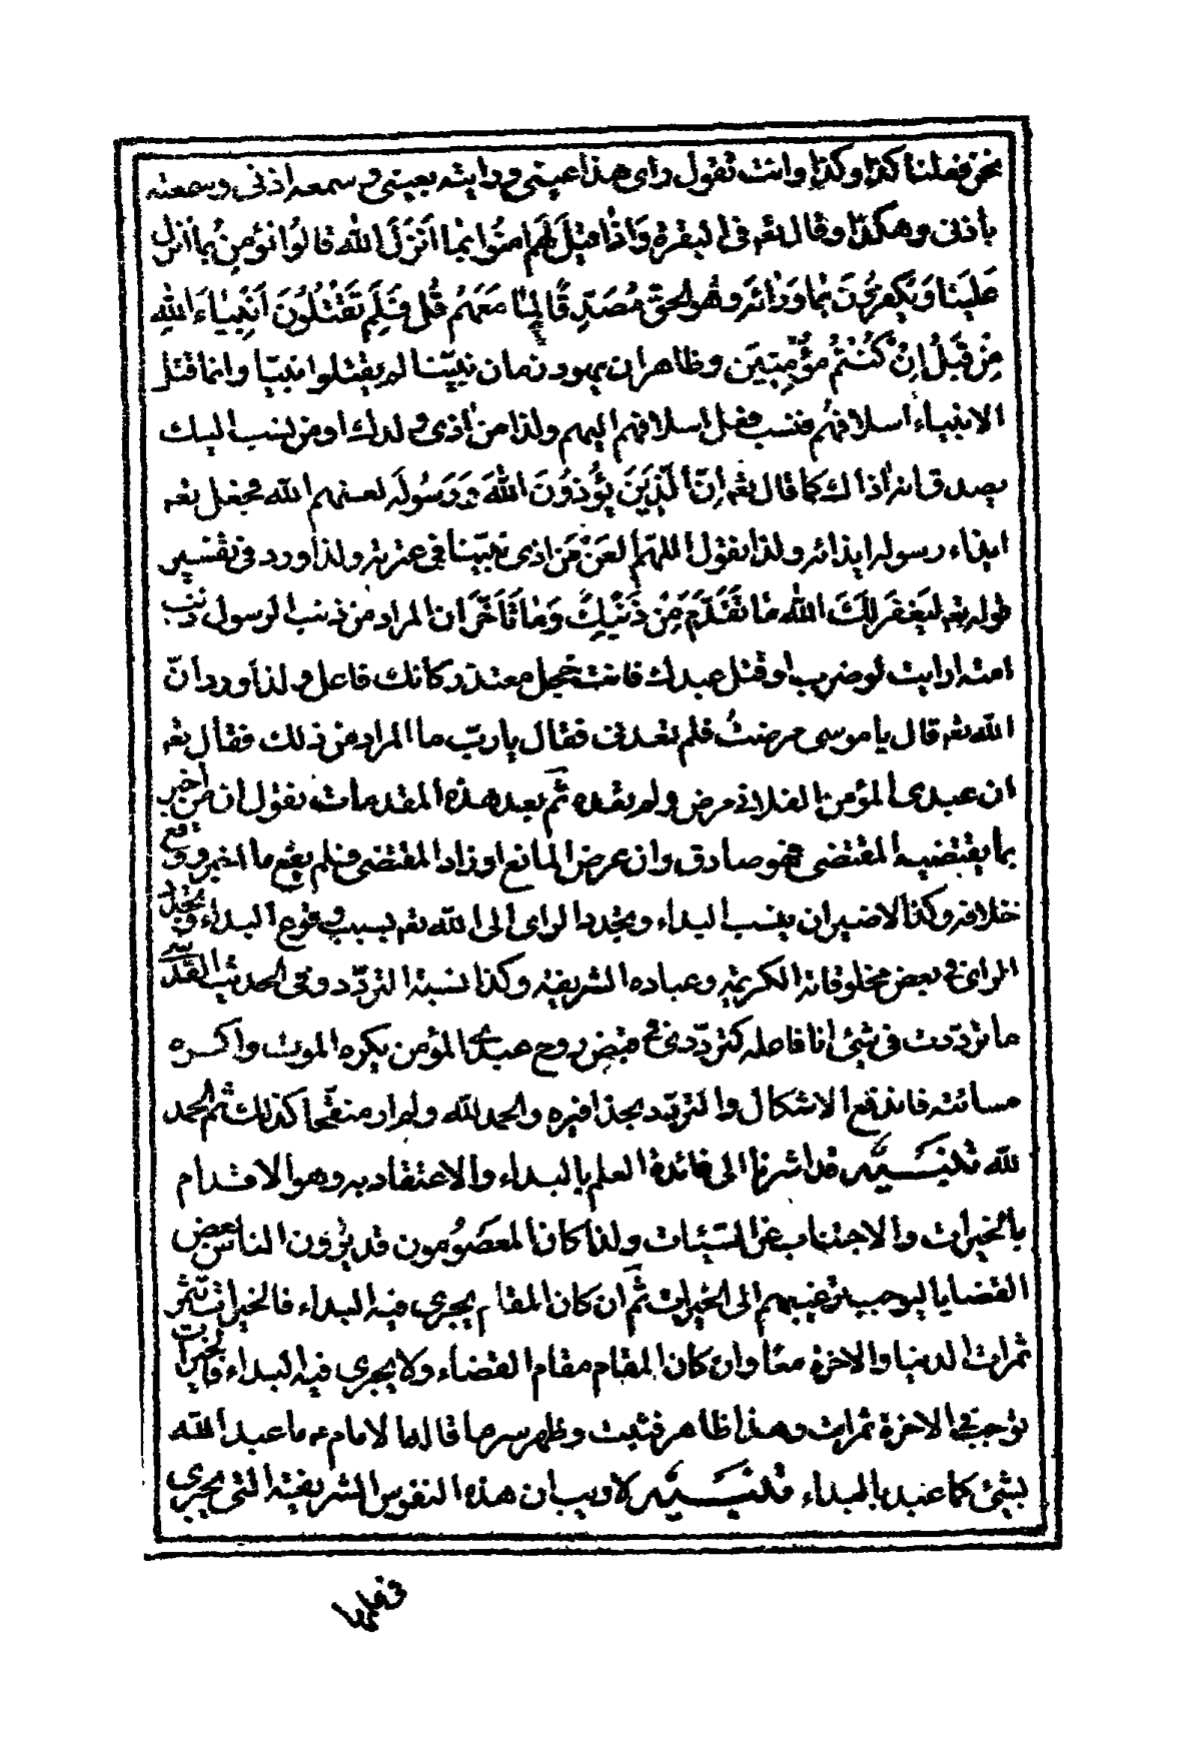 نحن فعلنا كذا وكذا وانت تقول راى هذا عينى ورايته بعينى وسمعه اذنى وسمعته
باذنى وهكذا وقال تعه فى البقرة وَاِذٰا قيلَ لَهُم امنُوا بمٰا اَنْزَلَ اللهُ قالُوا نؤمِنُ بمٰا اُنزل
عَلَينٰا وَيَكفرُونَ بمٰا وَرٰائَه وهُوَ الحقّ مُصَدّقًا لِمٰا مَعَهُم قُل فَلِمَ تَقْتُلُونَ اَنْبِيٰاءَ اللهِ
مِنْ قَبلُ اِنْ كُنْتُم مُؤمِنينَ وظاهر ان يهود زمان نبيّنا لم يقتلوا نبيّا وانما قتل
الانبياء اسلافهُم فنسب فعل اسلافهم اليهم ولذا من اذى ولدك او من ينسب اليك
يصدق انه اذاك كما قال تعه اِنّ الّذينَ يُؤذونَ اللهَ وَرَسُولَه لعنهم الله فجعل تعه
ايذاء رسوله ايذائه ولذا نقول اللهمّ العَنْ مَن اذى نبيّنا فى عترته ولذا ورد فى تفسير
قوله تعه ليَغفرَ لكَ الله مٰا تَقَدّمَ مِن ذَنبكَ وَمٰا تَاَخّرَ ان المراد من ذنب الرسول ذنب
امته ارايت لو ضرب او قتل عبدك فانت خجل معتذر كانك فاعل ولذا ورد انّ
الله تعه قال يا موسى مرضتُ فلم تعدنى فقال يا ربّ ما المراد من ذلك فقال تعه
ان عبدى المؤمن الفلانى مرض ولم تعده ثمّ بعد هذه المقدمات نقول ان من اخبر
بما يقتضيه المقتضى فهو صادق وان عرض المانع او زاد المقتضى فلم يقع ما اخبر ووقع
خلافه وكذا لا ضير ان ينسب البداء وتجدد الراى الى الله تعه بسبب وقوع البداء وتجدد
الراى فى بعض مخلوقاته الكريمة وعباده الشريفة وكذا نسبة التردّد وفى الحديث القدسى
ما تردّدت فى شئ انا فاعله كتردّدى فى قبض روح عبدى المؤمن يكره الموت واكره
مسائته فاندفع الاشكال والترديد بحذافيره والحمد لله ولم ار منقّحا كذلك ثم الحمد
لله تنبيه قد اشرنا الى فائدة العلم بالبداء والاعتقاد به وهو الاقدام
بالخيرات والاجتناب عن السّيئات ولذا كان المعصُومون قد يرُون الناس بعض
القضايا ليوجب ترغيبهم الى الخيرات ثمّ ان كان المقام يجرى فيه البداء فالخيرات تثمر
ثمرات الدنيا والاخرة معًا وان كان المقام مقام القضاء ولا يجرى فيه البداء فالخيرات
توجب فى الاخرة ثمرات وهذا ظاهر فثبت وظهر سر ما قاله الامام ع ما عبد الله
بشئ كما عبد بالبداء تنبيه لا ريب ان هذه النفوس الشريفة التى يجرى
فى علمها